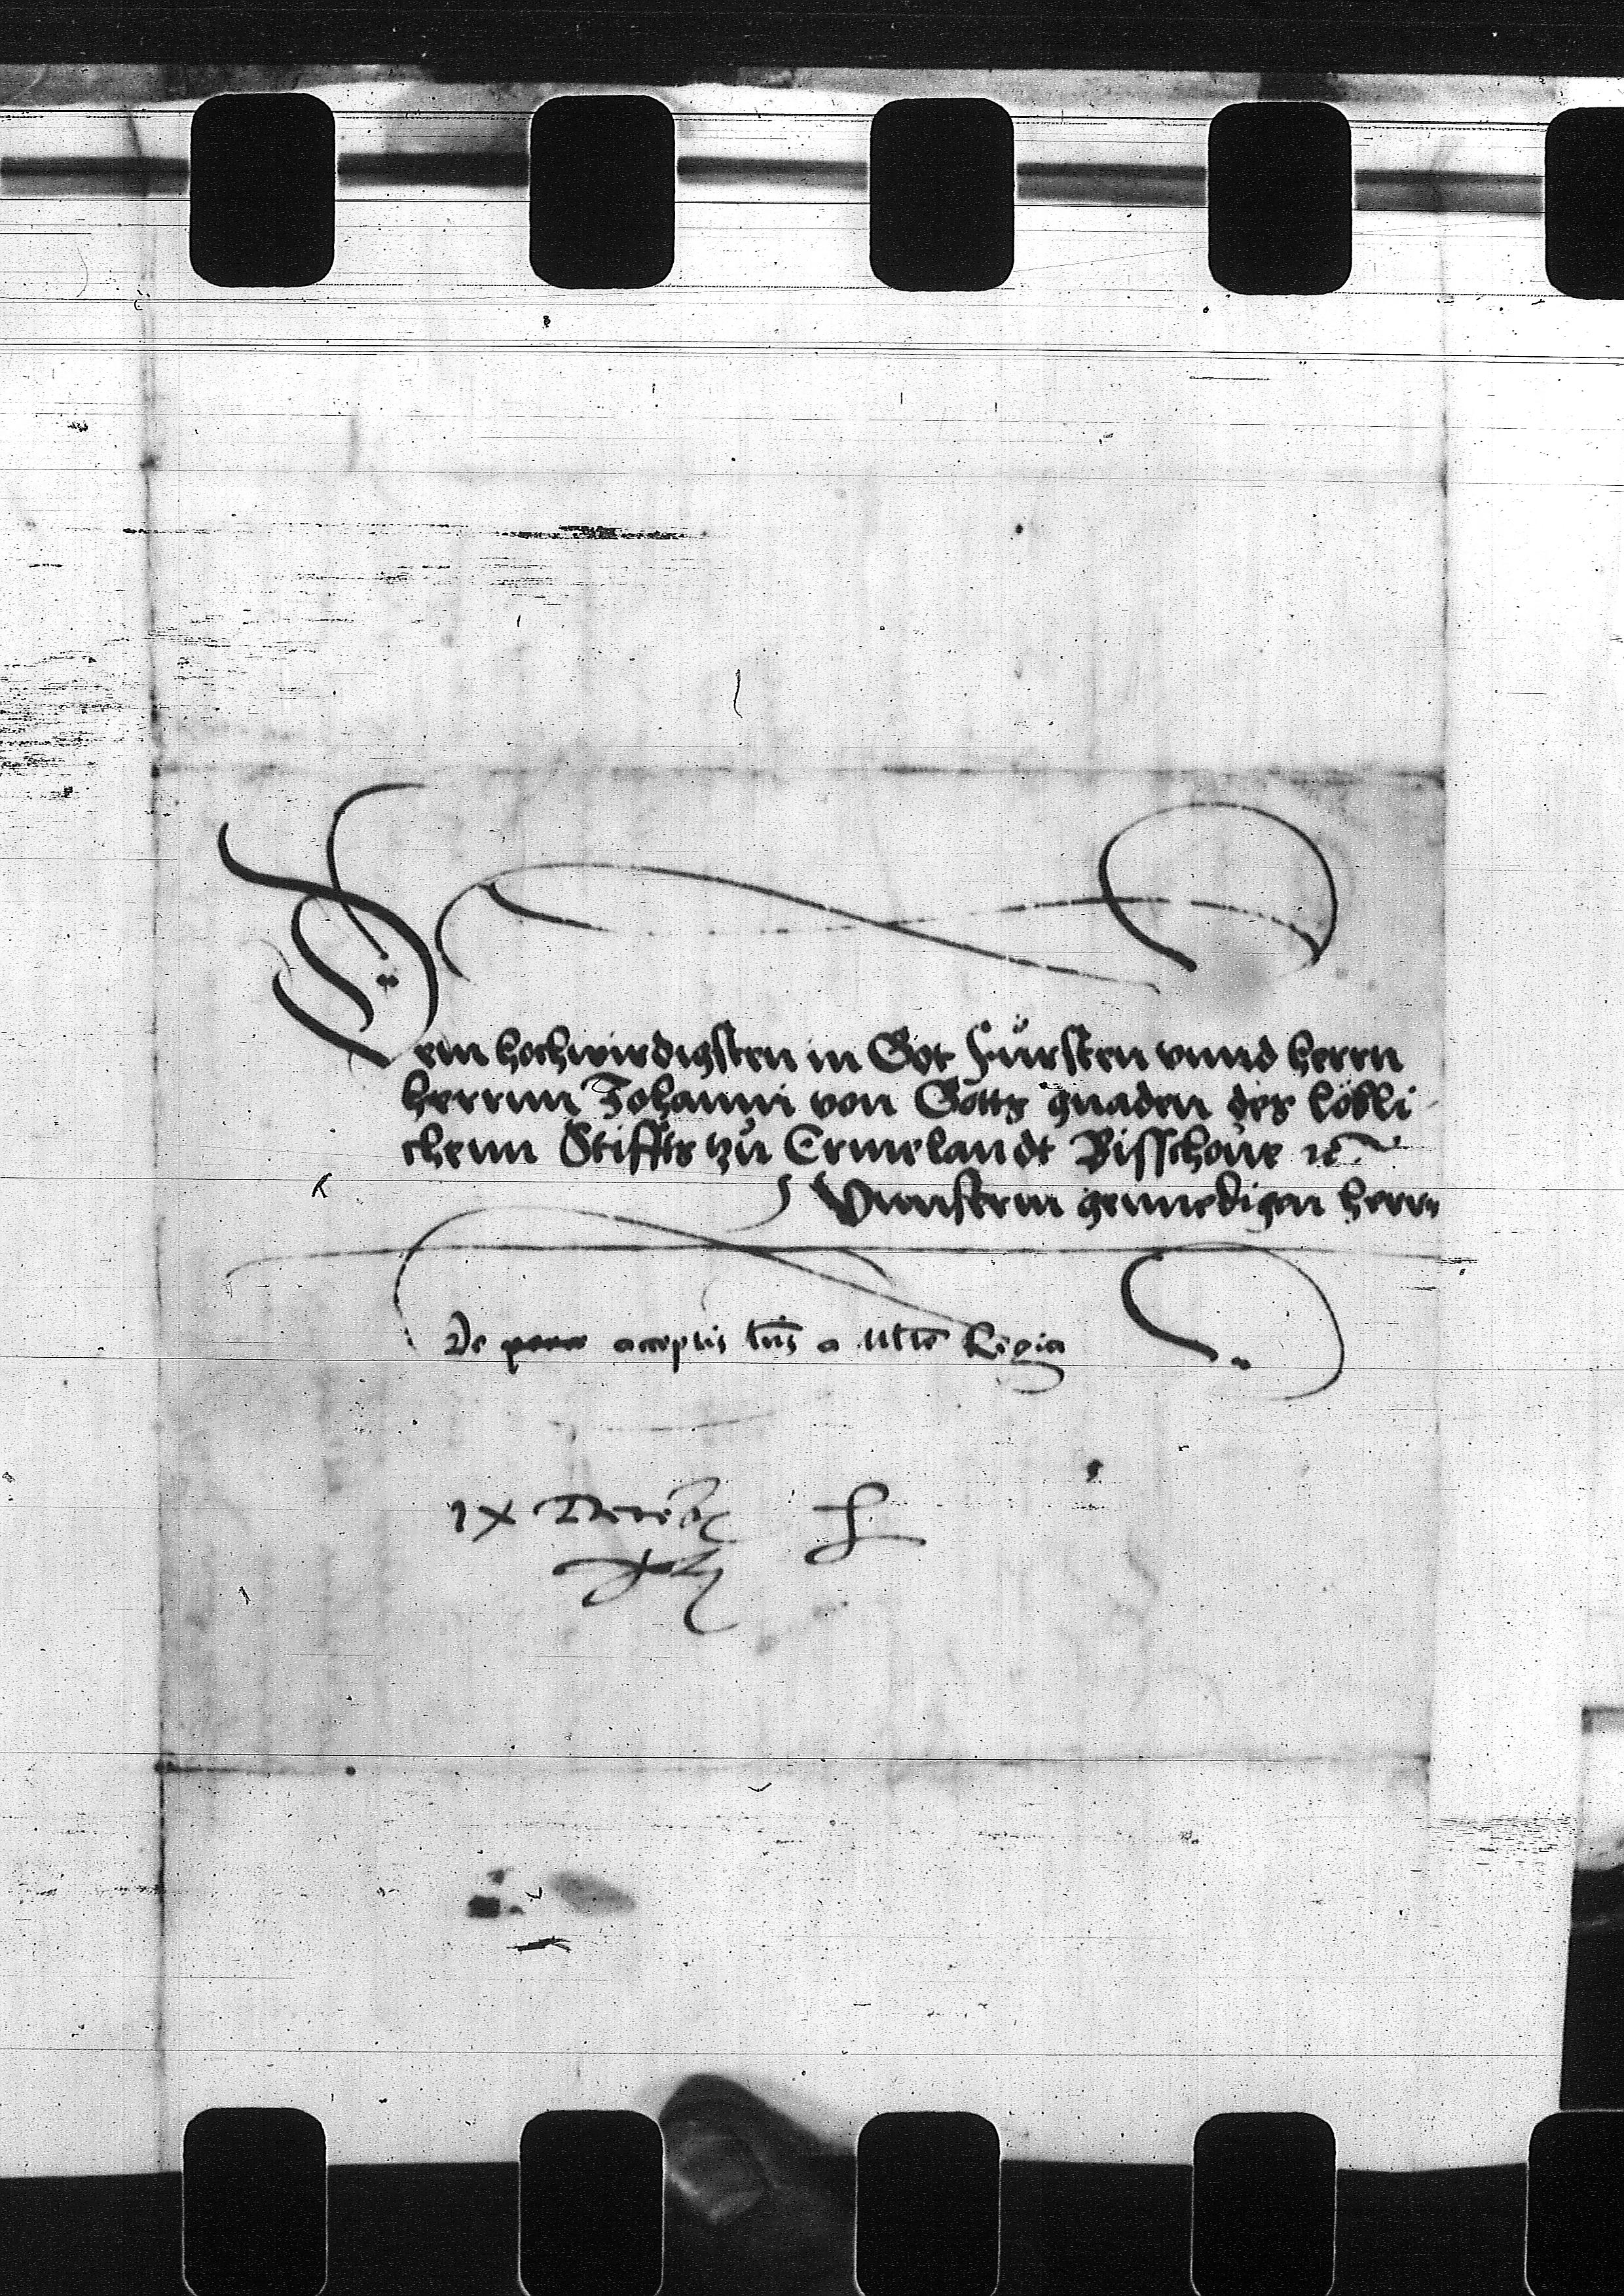 Dem hochwirdigsten in Got Fürsten vnnd hern
herrnn Johanni von Gotts gnaden des löbli
chenn Stiffts zu Ermelandt Bisschoue ꝛc
Vnnserm gennedigen hern
De acceptis lris a Mte Regia
IX